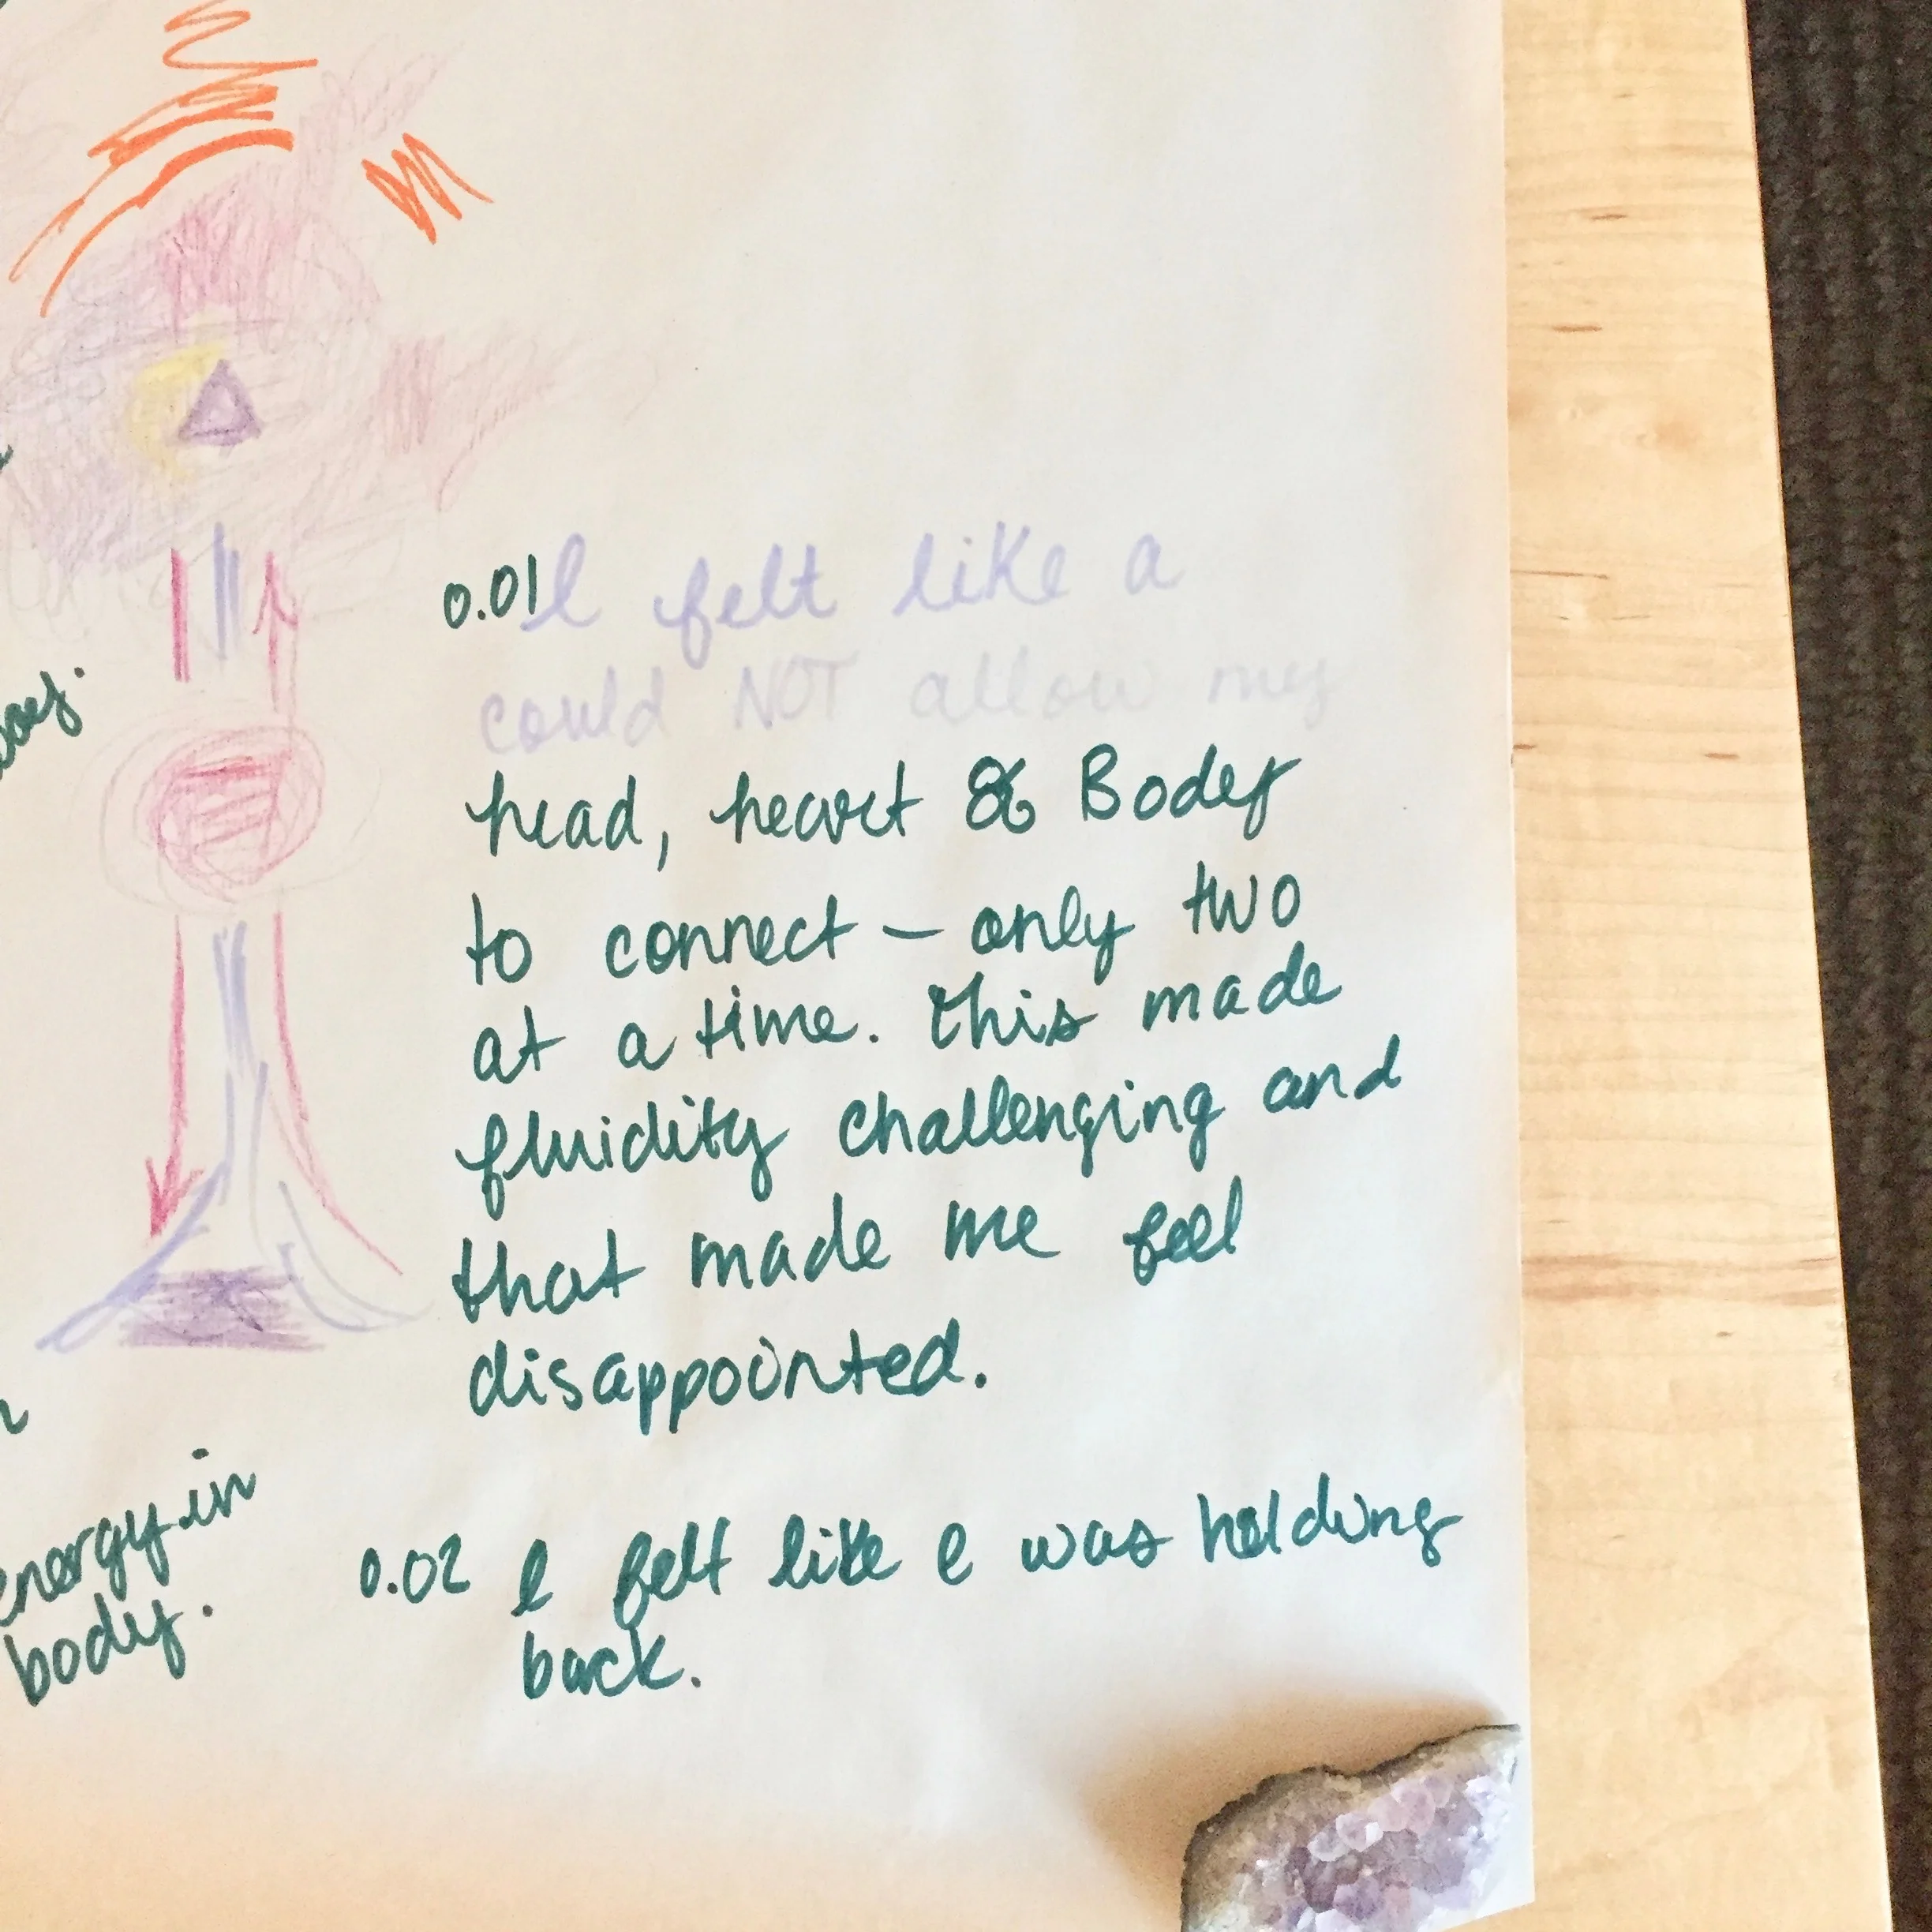 0.01 I felt like a
could NOT allow my
head, heart & Body
to connect – only two
at a time. This made
fluidity challenging and
that made me feel
disappointed.
energy in
body.
0.02 I felt like I was holding
back.